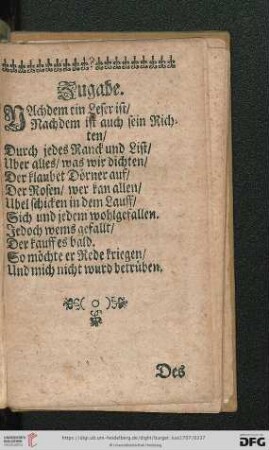 Zugabe.
NAchdem ein Leser ist/
Nachdem ist auch sein Rich-
ten/
Durch jedes Ranck und List/
Uber alles/ was wir dichten/
Der klaubet Dörner auf/
Der Rosen/ wer kan allen/
Ubel schicken in dem Lauff/
Sich und jedem wohlgefallen.
Jedoch wems gefallt/
Der kauff es bald.
So möchte er Rede kriegen/
Und mich nicht wurd betrüben.
Des
UNIVERSITÄTS-
BIBLIOTHEK
HEIDELBERG
https://digi.ub.uni-heidelberg.de/diglit/
© Universitätsbibliothek Heidelberg
Gefördert durch die
DFG